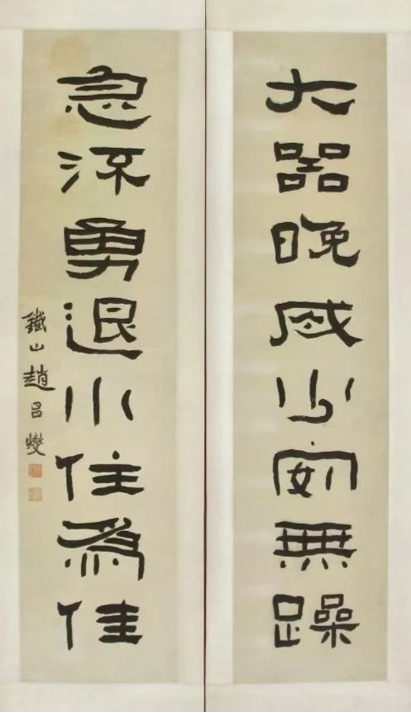 大器晚成少安無躁
急流勇退小住為佳
鐵山趙呂燮